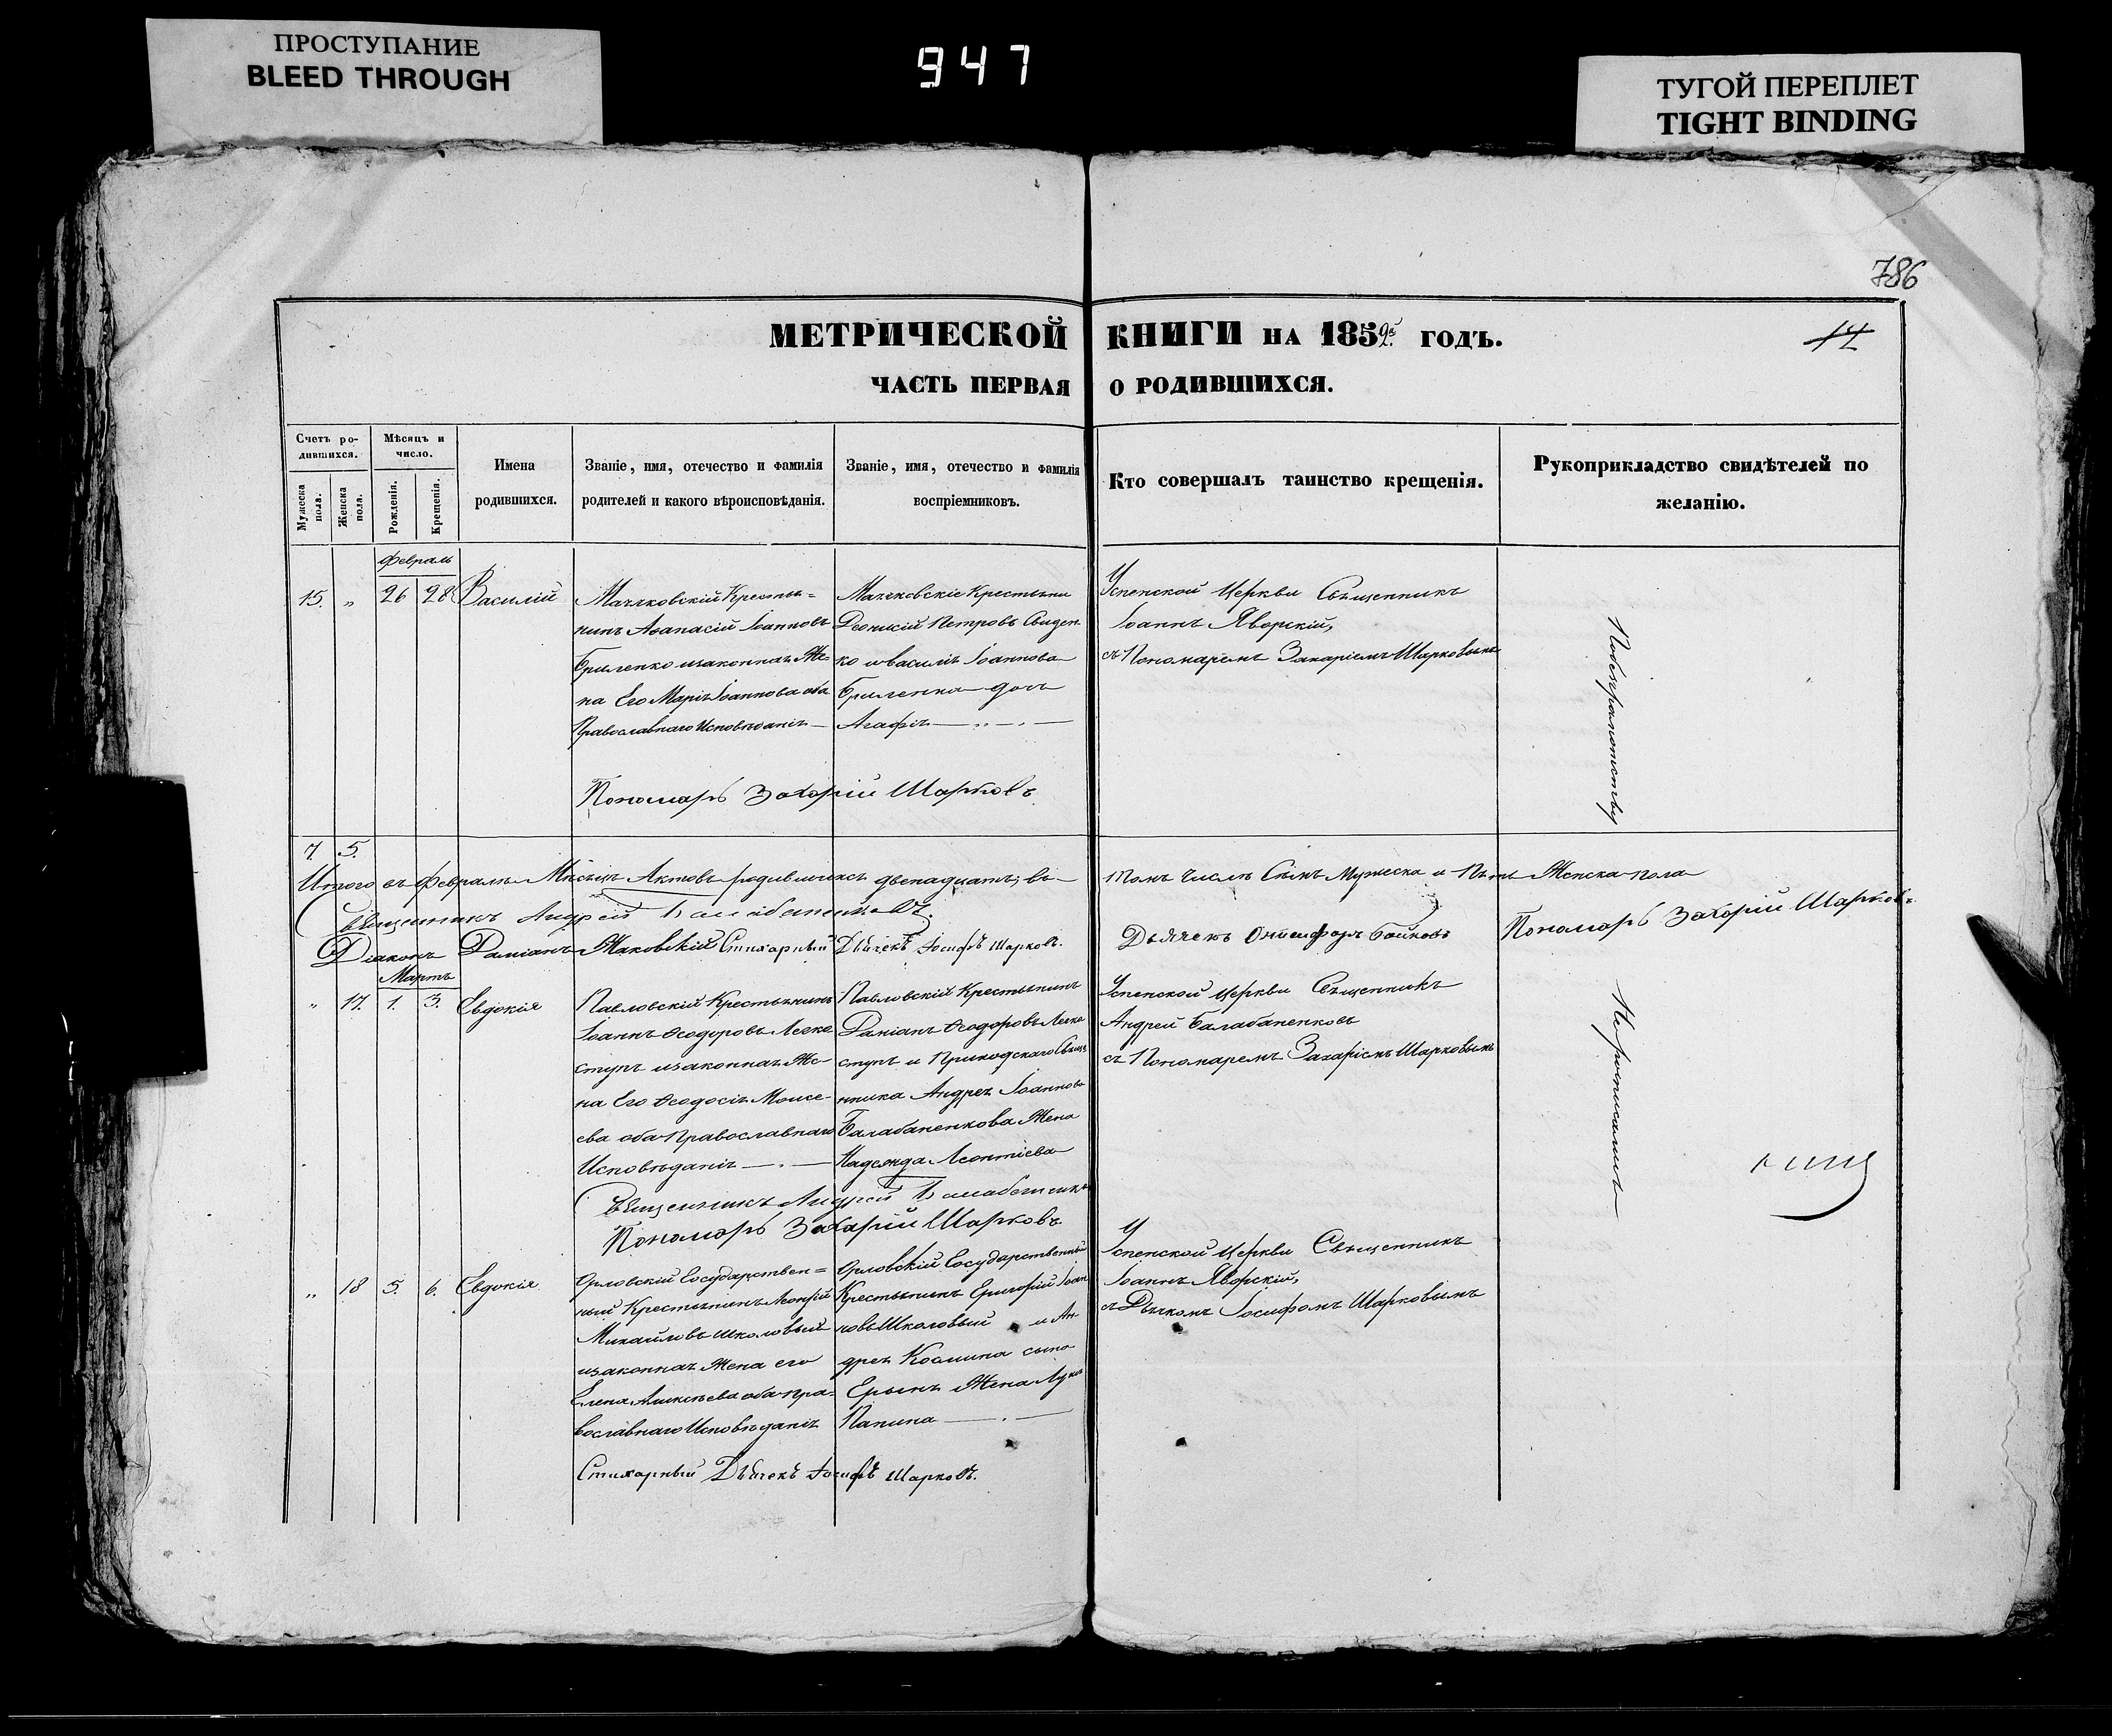 ПРОСТУПАНИЕ
BLEED THROUGH
947
ТУГОЙ ПЕРЕПЛЕТ
TIGHT BINDING
786
МЕТРИЧЕСКОЙ КНИГИ НА 1852й ГОДЪ.
14
ЧАСТЬ ПЕРВАЯ О РОДИВШИХСЯ.
Счетъ ро-
дившихся.
Мужеска пола.
Женска пола.
Мѣсяцъ и
число.
Рожденія.
Крещенія.
Имена
родившихся.
Званіе, имя, отечество и фамилія
родителей и какого вѣроисповѣданія.
Званіе, имя, отечество и фамилія
воспріемниковъ.
Кто совершалъ таинство крещенія.
Рукоприкладство свидѣтелей по
желанію.
Февраль
15. „ 26 28 Василій
Крестья=
нинъ Аѳанасій Іоанновъ
Бриленко изаконная Же=
на Его Марія Іоаннова оба
Православнаго Исповѣданія —
Крестьяне
Діонисій Петровъ Свиден
ко и Василія Іоаннова
Бриленка дочь
Агафія
Успенской Церкви Священникъ
Іоаннъ Яворскій,
съ Пономаремъ Захаріемъ Шарковымъ
Понеграмотству
Пономарь Захарій Шарковъ
7. 5.
Итого въ Февралѣ Мѣсяцѣ Актовъ родившихся двенадцать; въ
томъ Числѣ Семь Мужеска и Пять Женска пола
Священникъ Андрей Балабаненковъ.
Діаконъ Даміанъ Маковскій Стихарный Дьячекъ Іосифъ Шарковъ.
Дьячекъ Онисифоръ Бойковъ
Пономарь Захорій Шарковъ
Мартъ
„ 17. 1. 3. Евдокія
Павловскій Крестьянинъ
Іоаннъ Ѳеодоровъ Легко
ступъ изаконная Же-
на Его Ѳеодосія Моисе-
ева оба Православнаго
Исповѣданія —
Павловскій Крестьянинъ
Даміанъ Ѳеодоровъ Легко
ступъ и Приходскаго Свяще
нника Андрея Іоаннова
Балабаненкова Жена
Надежда Леонтіева
Успенской Церкви Священникъ
Андрей Балабаненковъ
съ Пономаремъ Захаріемъ Шарковымъ
Священникъ Андрей Балабаненковъ
Пономарь Захарій Шарковъ
„ 18 5. 6. Евдокія
Орловскій Государствен=
ный Крестьянинъ Леонтій
Михайловъ Школовый
изаконная Жена его
Елена Алексѣева оба пра-
вославнаго Исповѣданія
Орловскій Государственный
Крестьянинъ Григорій Іоан
новъ Школовый и Ан
дрея Космина сына
Жена
Успенской Церкви Священникъ
Іоаннъ Яворскій,
съ Дьячкомъ Іосифомъ Шарковымъ
Стихарный Дьячекъ Іосифъ Шарковъ.